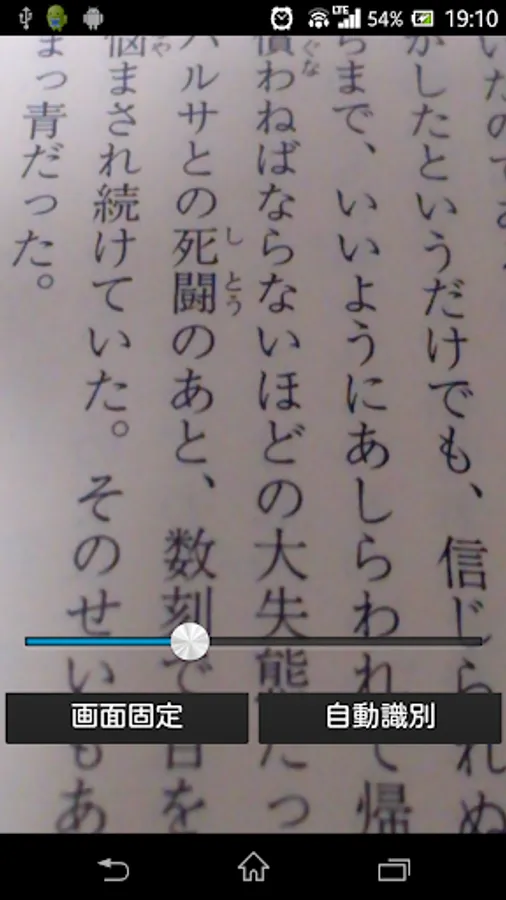 LTE 54% 19:10
いたの
がしたというだけでも、信じられぬ
らまで、いいようにあしらわれて帰
償わねばならないほどの大失能だっ
ぐな
バルサとの死闘のあと、数刻で
しとう
を
悩まされ続けていた。そのせいもあ
や
まっ青だった。
画面固定
自動識別